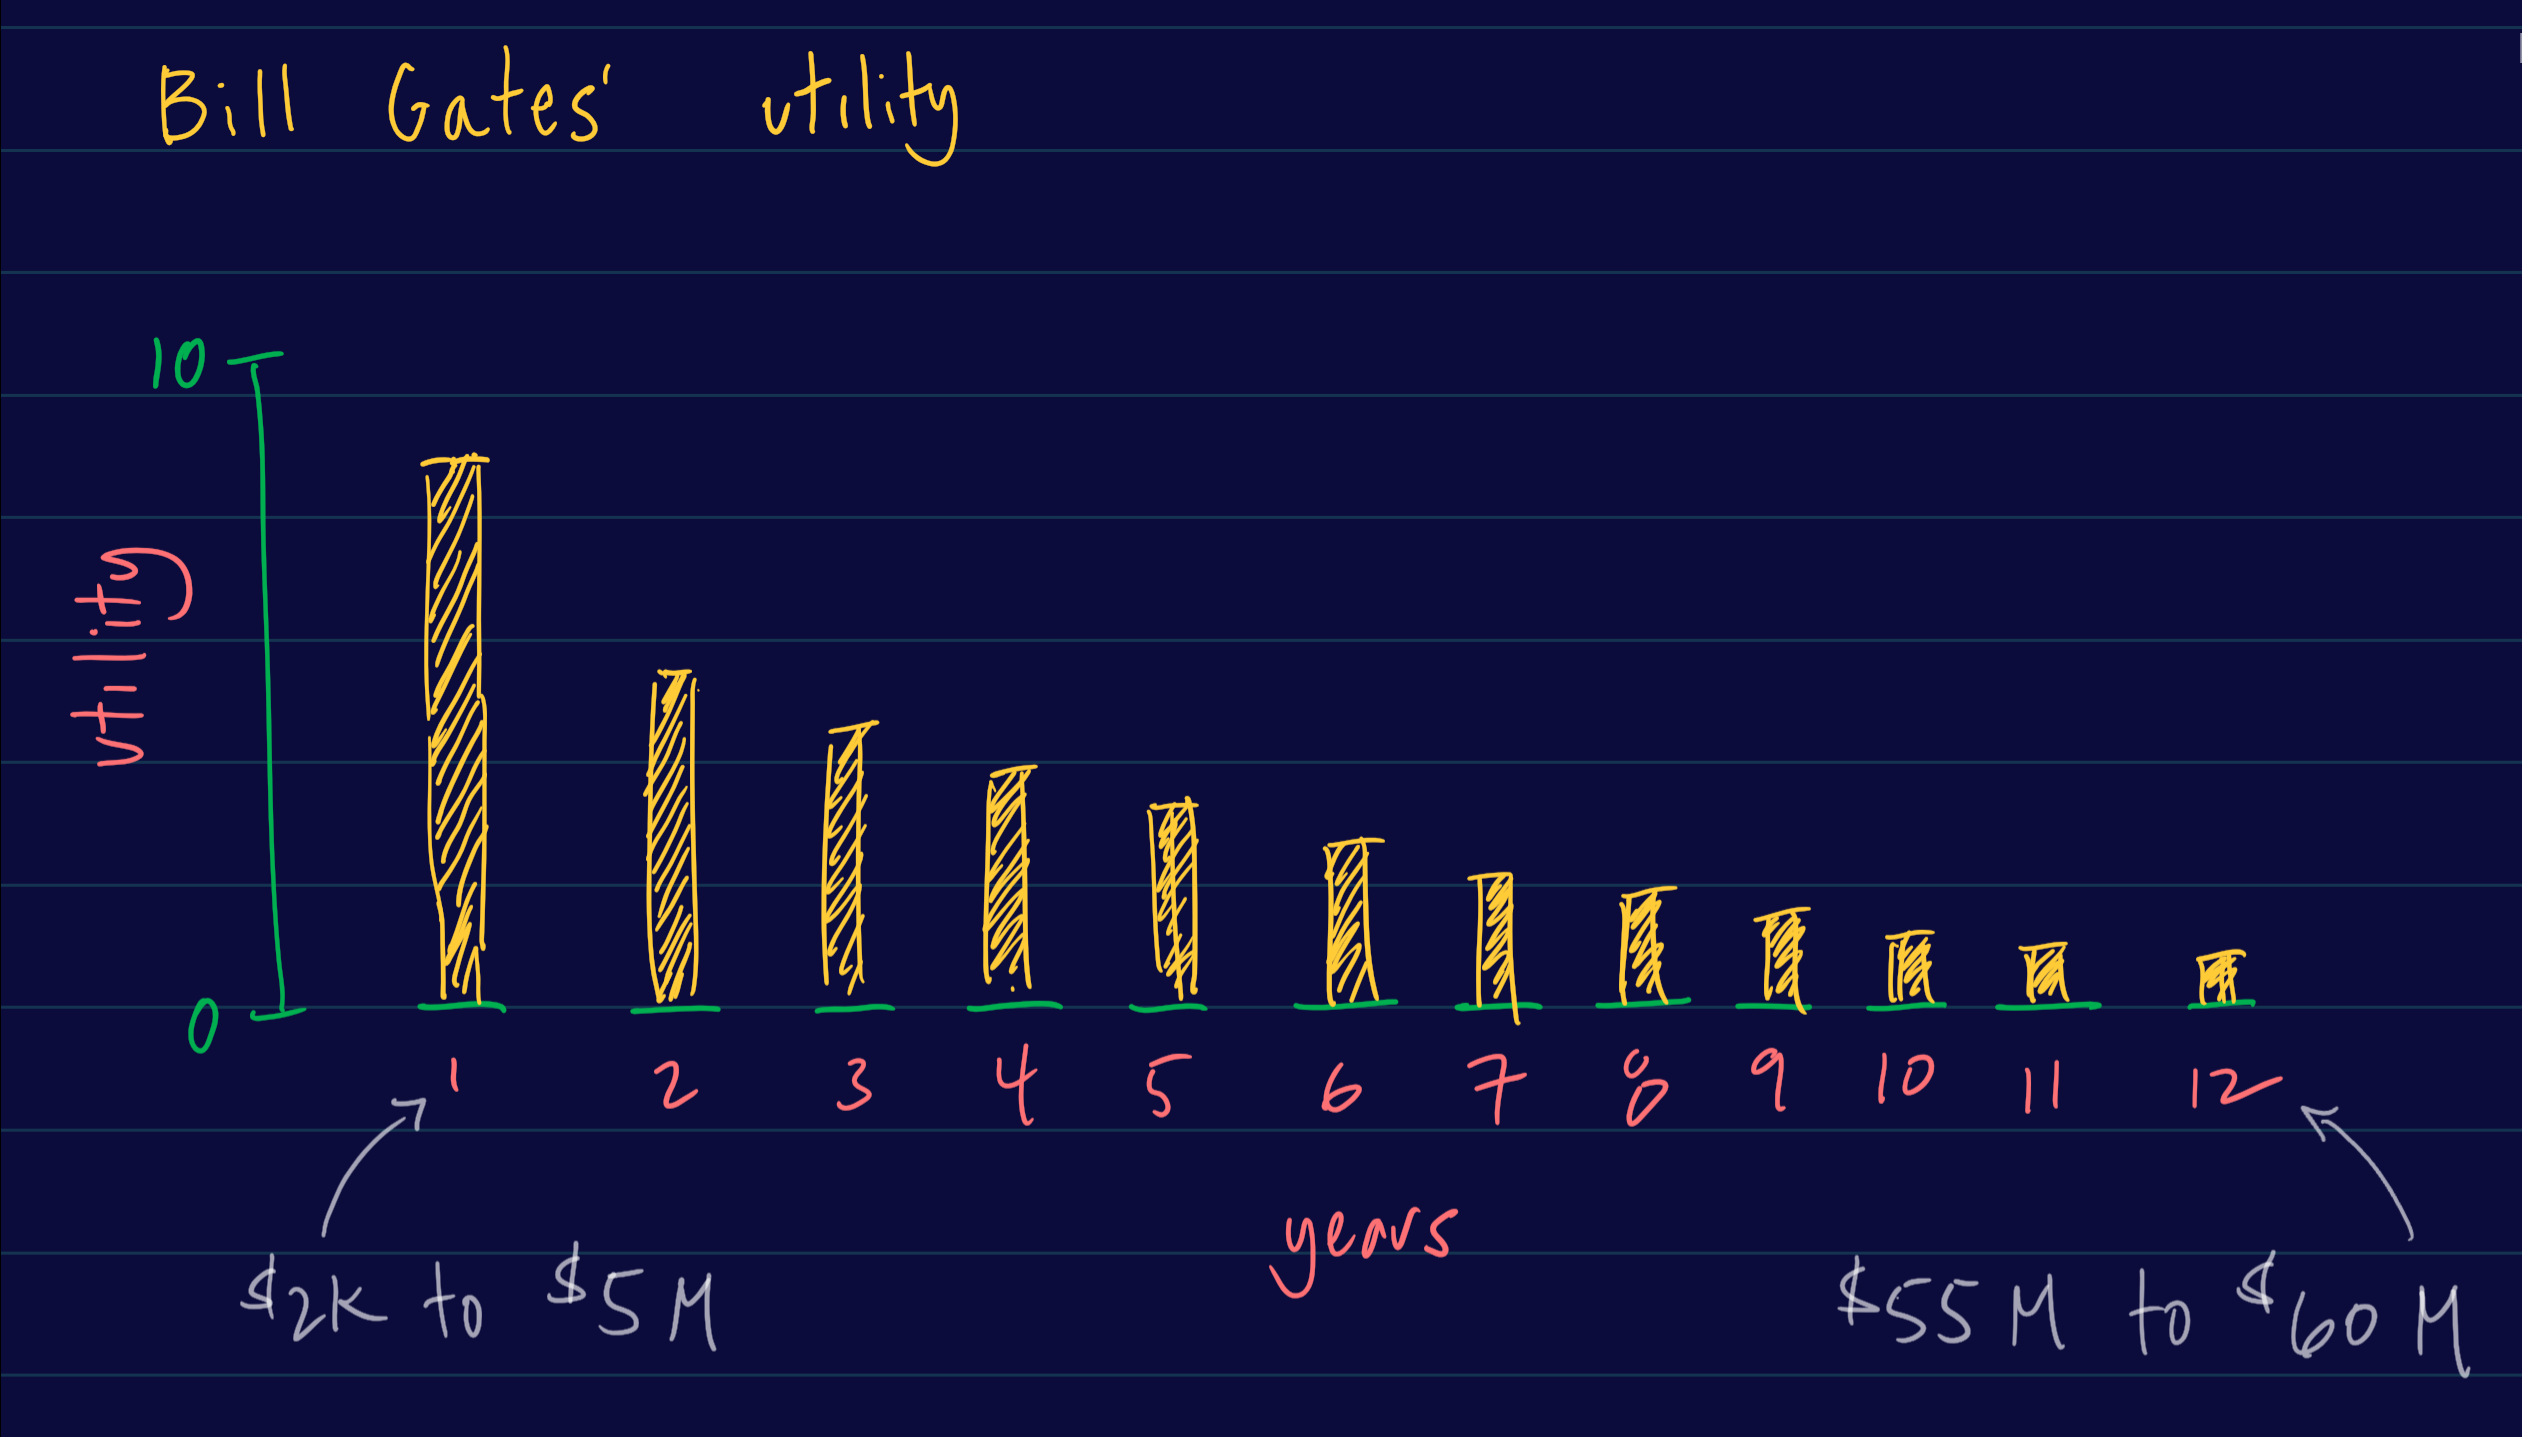 Bill Gates' utility
10
utility
0
1 2 3 4 5 6 7 8 9 10 11 12
years
$2K to $5M
$55M to $60M